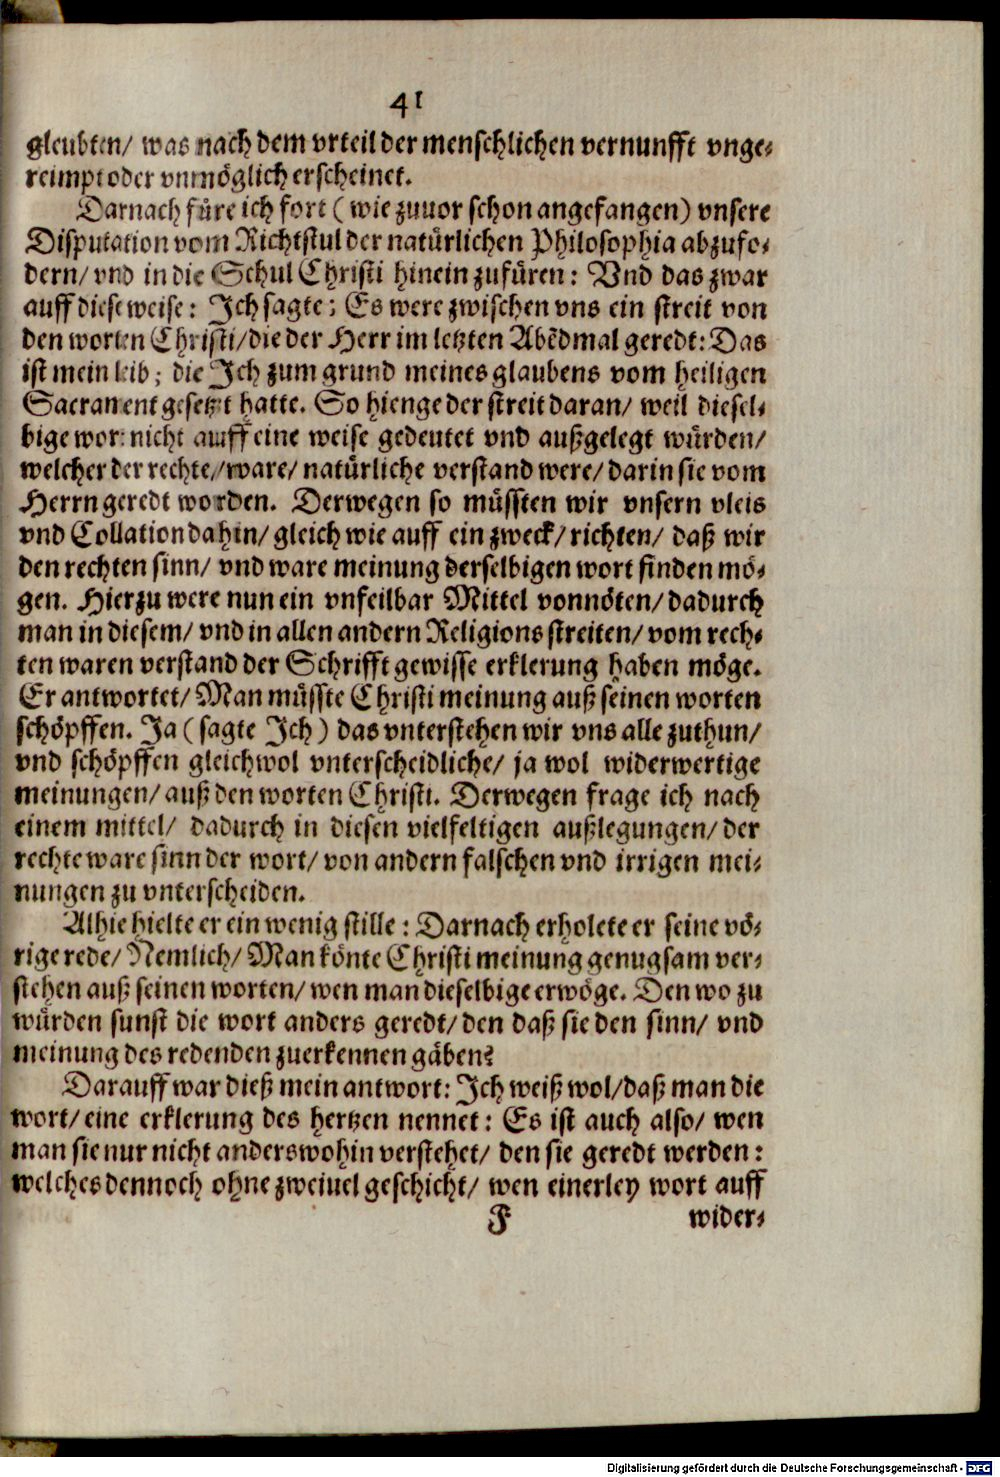 41
gleubten/ was nach dem vrteil der menschlichen vernunfft vnge-
reimpt oder vnmöglich erscheinet.
Darnach füre ich fort (wie zuuor schon angefangen) vnsere
Disputation vom Richtstul der natürlichen Philosophia abzufo-
dern/ vnd in die Schul Christi hinein zufüren: Vnd das zwar
auff diese weise: Ich sagte; Es were zwischen vns ein streit von
den worten Christi/ die der Herr im letzten Abẽdmal geredt: Das
ist mein leib; die Ich zum grund meines glaubens vom heiligen
Sacrament gesetzt hatte. So hienge der streit daran/ weil diesel-
bige wort nicht auff eine weise gedeutet vnd außgelegt würden/
welcher der rechte/ ware/ natürliche verstand were/ darin sie vom
Herrn geredt worden. Derwegen so müssten wir vnsern vleis
vnd Collation dahin/ gleich wie auff ein zweck/ richten/ daß wir
den rechten sinn/ vnd ware meinung derselbigen wort finden mö-
gen. Hierzu were nun ein vnfeilbar Mittel vonnöten/ dadurch
man in diesem/ vnd in allen andern Religions streiten/ vom rech-
ten waren verstand der Schrifft gewisse erklerung haben möge.
Er antwortet/ Man müsste Christi meinung auß seinen worten
schöpffen. Ja (sagte Ich) das vnterstehen wir vns alle zuthun/
vnd schöpffen gleichwol vnterscheidliche/ ja wol widerwertige
meinungen/ auß den worten Christi. Derwegen frage ich nach
einem mittel/ dadurch in diesen vielfeltigen außlegungen/ der
rechte ware sinn der wort/ von andern falschen vnd irrigen mei-
nungen zu vnterscheiden.
Alhie hielte er ein wenig stille: Darnach erholete er seine vö-
rige rede/ Nemlich/ Man könte Christi meinung genugsam ver-
stehen auß seinen worten/ wen man dieselbige erwöge. Den wo zu
würden sunst die wort anders geredt/ den daß sie den sinn/ vnd
meinung des redenden zuerkennen gäben?
Darauff war dieß mein antwort: Ich weiß wol/ daß man die
wort/ eine erklerung des hertzen nennet: Es ist auch also/ wen
man sie nur nicht anderswohin verstehet/ den sie geredt werden:
welches dennoch ohne zweiuel geschicht/ wen einerley wort auff
F wider-
Digitalisierung gefördert durch die Deutsche Forschungsgemeinschaft - DFG